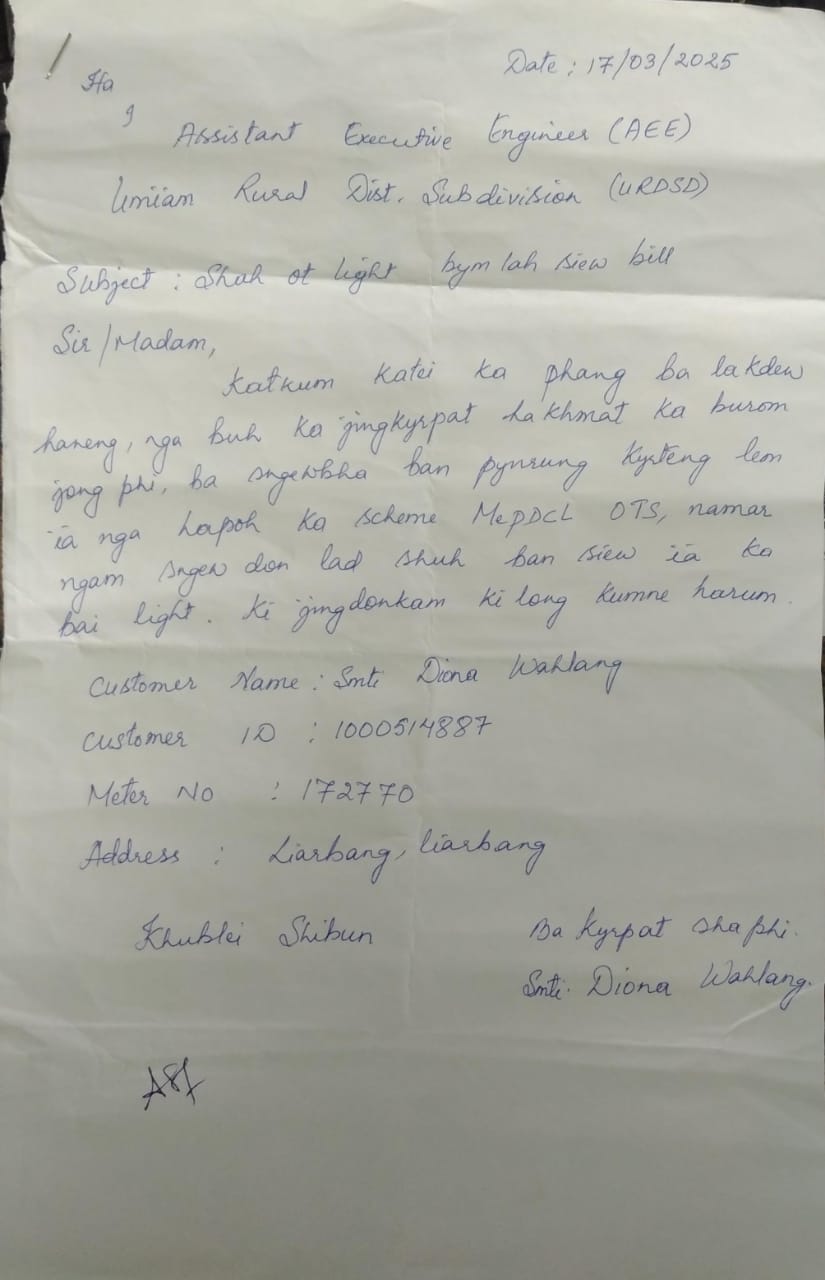 Date : 17/03/2025
Ha
,
Assistant Executive Engineer (AEE)
Umiam Rural Dist. Subdivision (URDSD)
Subject : Shah ot light bym lah siew bill
Sir/Madam,
Katkum katei ka phang ba la kdew
haneng, nga buh ka jingkyrpat ha khmat ka burom
jong phi, ba sngewbha ban pynrung kyrteng lem
ïa nga hapoh ka scheme MePDCL OTS, namar
ngam sngew don lad shuh ban siew ïa ka
bai light. Ki jingdonkam ki long kumne harum.
Customer Name : Smti Diona Wahlang
Customer ID : 1000514887
Meter No : 172770
Address : Liarbang, liarbang
Khublei Shibun
Ba kyrpat sha phi.
Smti. Diona Wahlang.